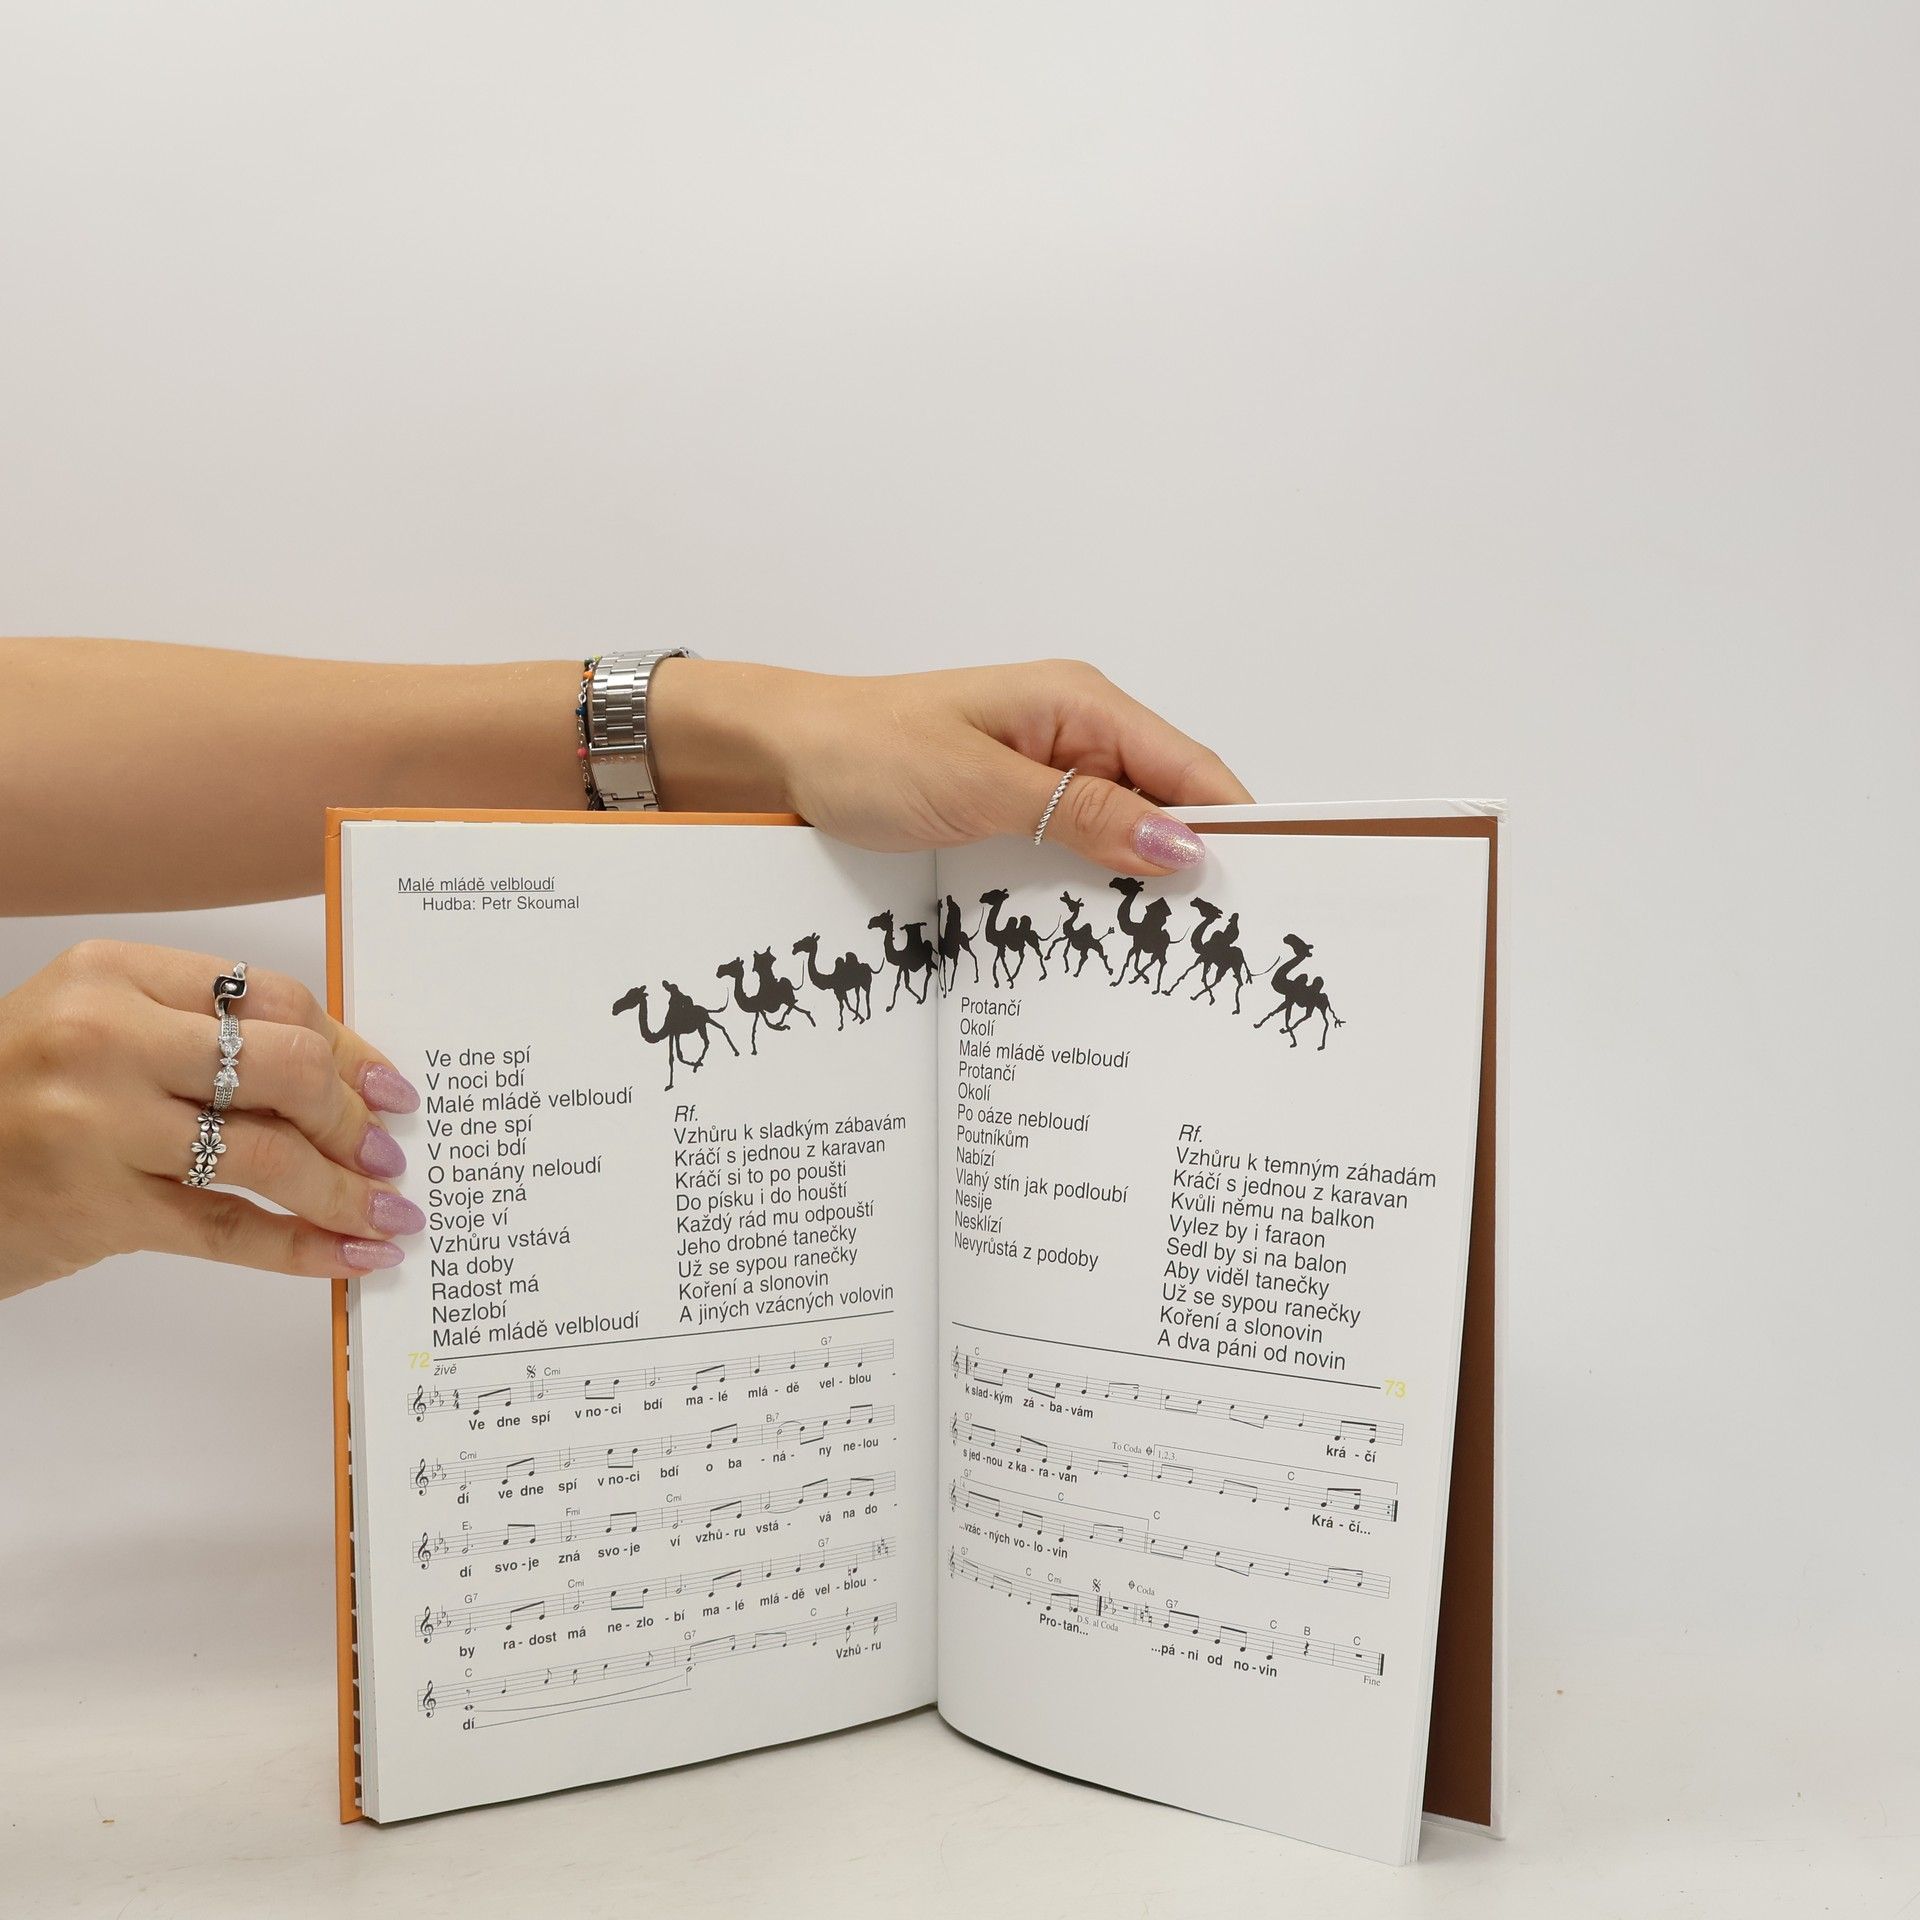 Malé mládě velbloudí
Hudba: Petr Skoumal
Ve dne spí
V noci bdí
Malé mládě velbloudí
Ve dne spí
V noci bdí
O banány neloudí
Svoje zná
Svoje ví
Vzhůru vstává
Na doby
Radost má
Nezlobí
Malé mládě velbloudí
Rf.
Vzhůru k sladkým zábavám
Kráčí s jednou z karavan
Kráčí si to po poušti
Do písku i do houští
Každý rád mu odpouští
Jeho drobné tanečky
Už se sypou ranečky
Koření a slonovin
A jiných vzácných volovin
72
živě
Cmi G7
Ve dne spí v no - ci bdí ma - lé mlá - dě vel - blou -
Cmi B♭7
dí ve dne spí v no-ci bdí o ba - ná - ny ne-lou -
E♭ Fmi Cmi
dí svo - je zná svo - je ví vzhů - ru vstá - vá na do -
G7 Cmi G7
by ra - dost má ne - zlo - bí ma - lé mlá - dě vel - blou -
C G7 C
dí Vzhů - ru
Protančí
Okolí
Malé mládě velbloudí
Protančí
Okolí
Po oáze nebloudí
Poutníkům
Nabízí
Vlahý stín jak podloubí
Nesije
Nesklízí
Nevyrůstá z podoby
Rf.
Vzhůru k temným záhadám
Kráčí s jednou z karavan
Kvůli němu na balkon
Vylez by i faraon
Sedl by si na balon
Aby viděl tanečky
Už se sypou ranečky
Koření a slonovin
A dva páni od novin
73
C
k slad - kým zá - ba - vám krá - čí
G7 To Coda 1.2.3. C
s jed - nou z ka - ra - van Krá - čí...
G7 C C
...vzác - ných vo - lo - vin
G7 C Cmi Coda G7 C B C
Pro - tan... D.S. al Coda ...pá - ni od no - vin
Fine